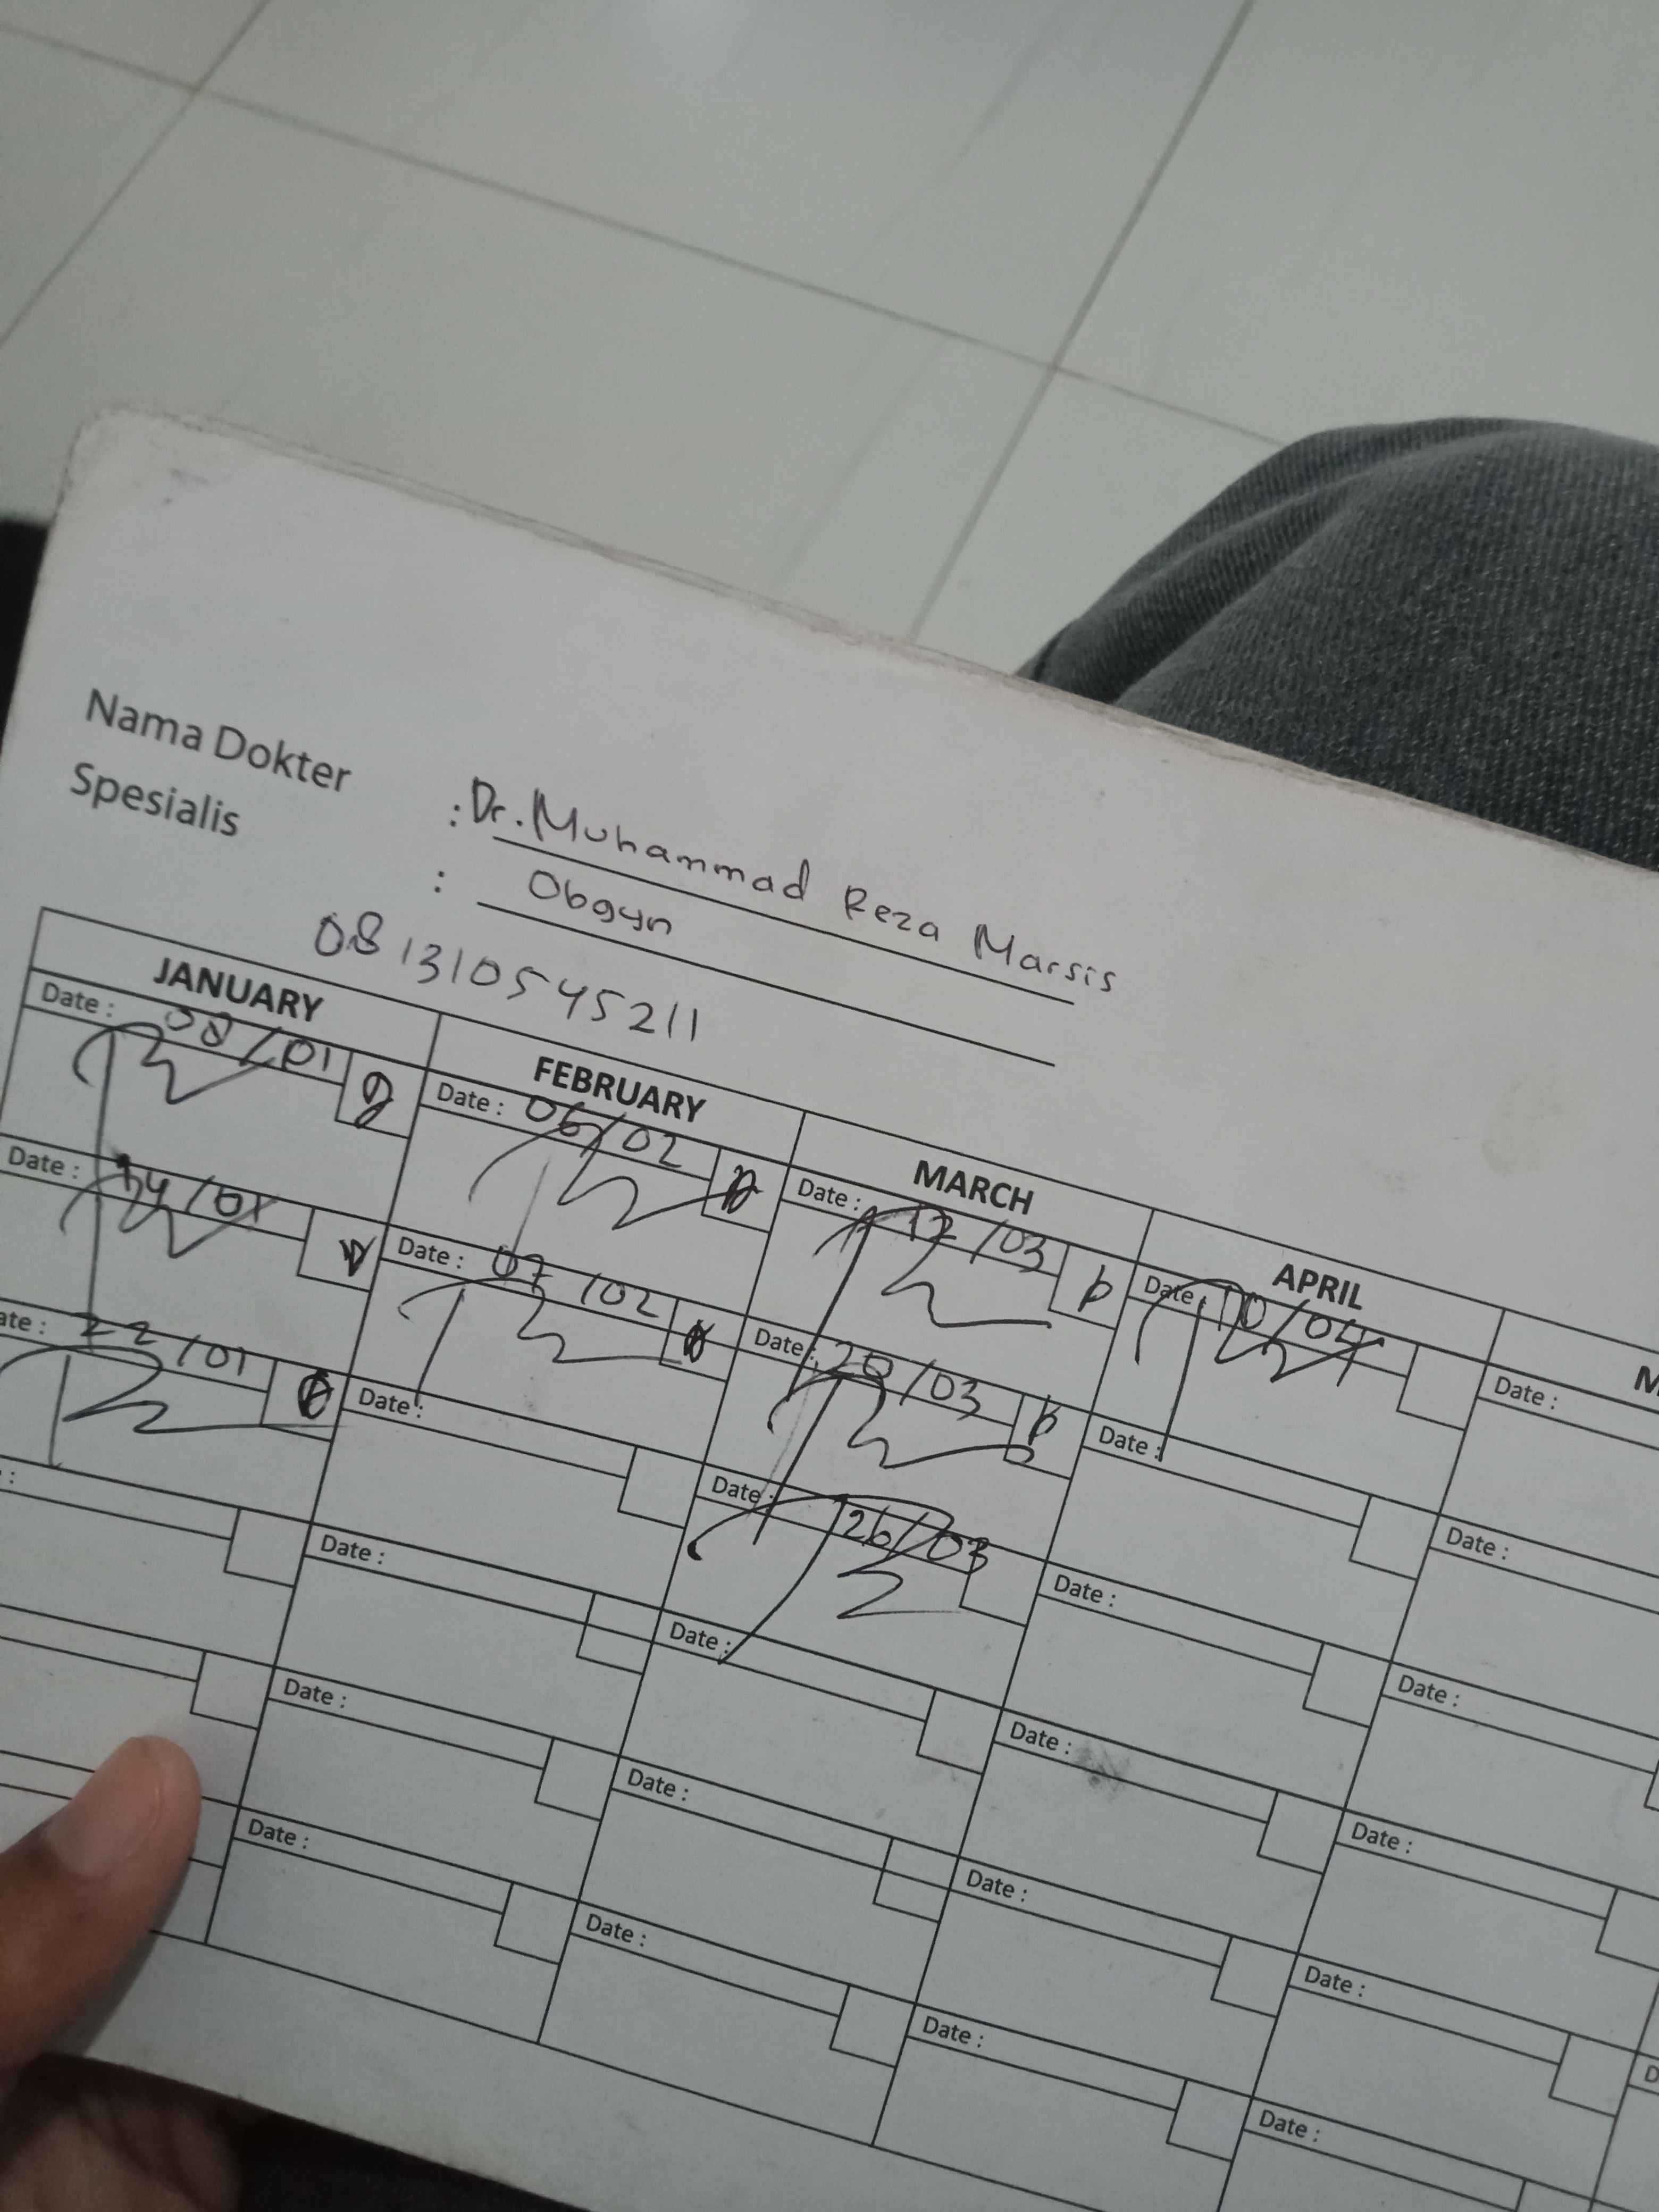 Nama Dokter : Dr. Muhammad Reza Marsis
Spesialis : Obgyn
081310545211
JANUARY FEBRUARY MARCH APRIL
Date : 08/01 Date : 06/02 Date : 12/03 Date : 10/04 Date :
Date : 14/01 Date : 07/02 Date : 20/03 Date : Date :
ate : 22/01 Date : Date : 26/03 Date : Date :
: Date : Date : Date : Date :
Date : Date : Date : Date :
Date : Date : Date : Date :